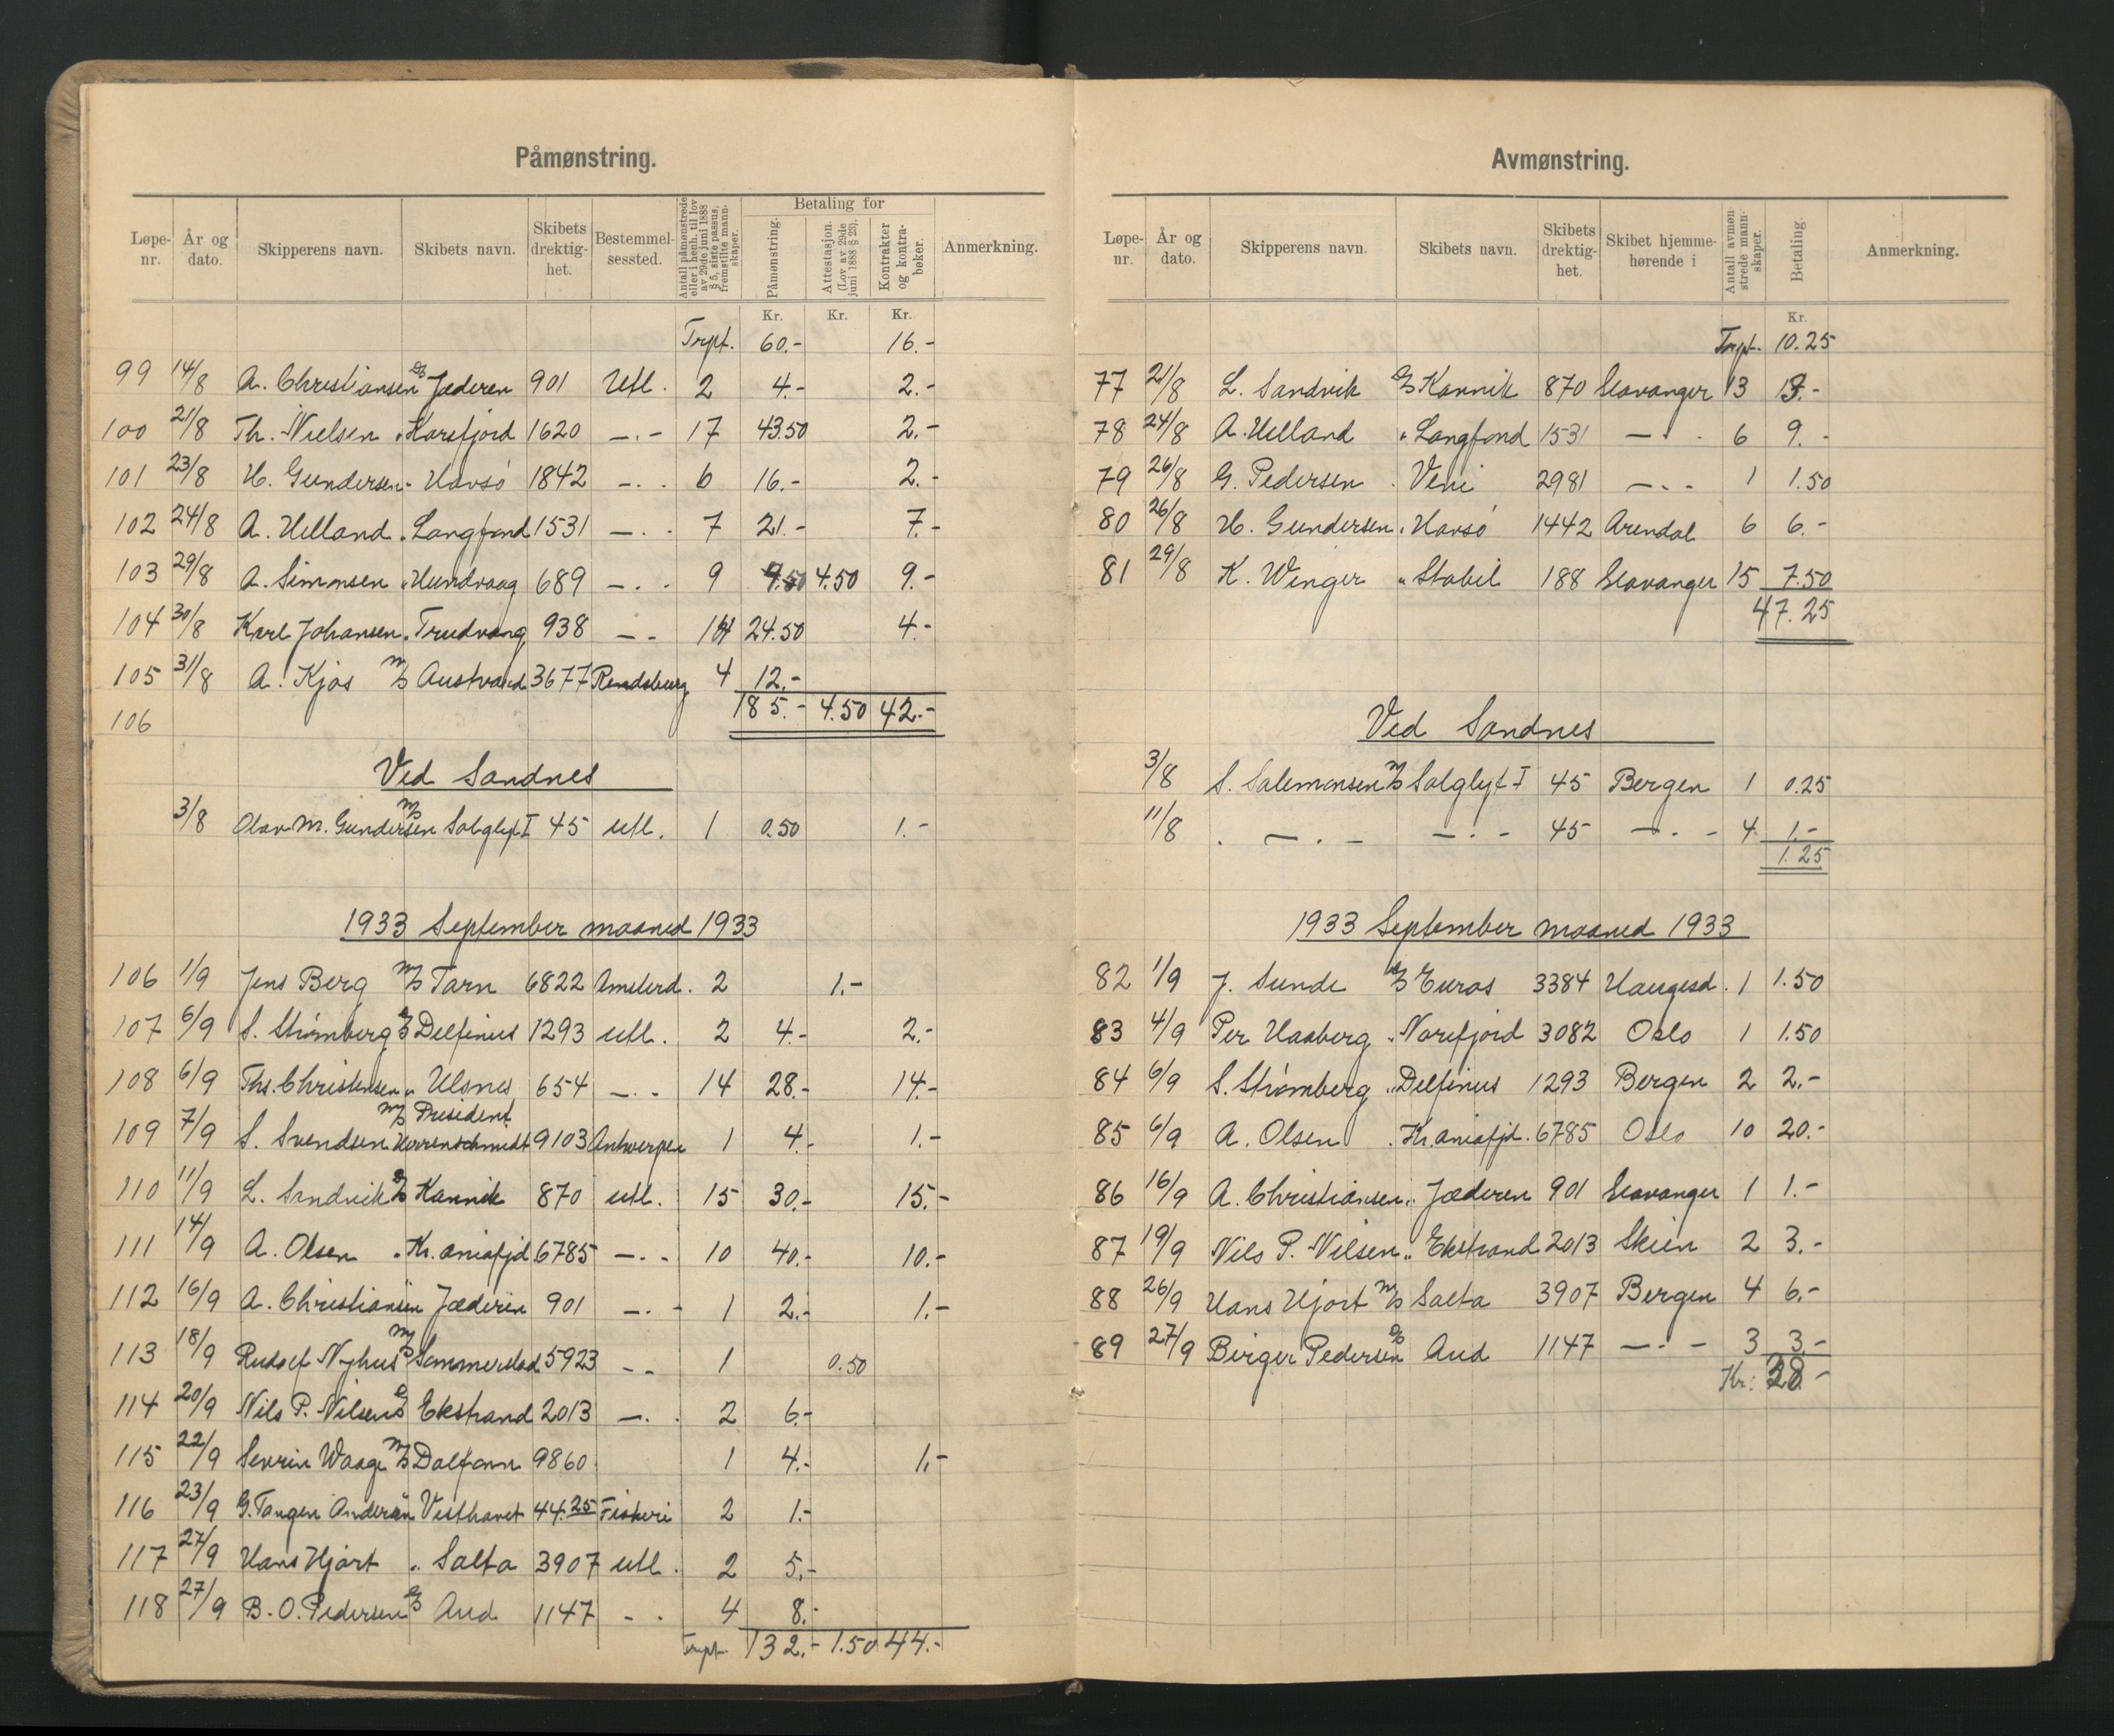 Påmønstring.
Løpe-nr. År og dato. Skipperens navn. Skibets navn. Skibets drektig-het. Bestemmel-sessted. Antall påmønstrede eller i henh. til lov av 29de juni 1888 § 5, siste passus, fremstilte mann-skaper. Betaling for Påmønstring. Attestasjon. (Lov av 29de juni 1888 § 25). Kontrakter og kontra-bøker. Anmerkning.
Kr. Kr. Kr.
Trpt. 60.- 16.-
99 14/8 A. Christiansen D/S Jæderen 901 Utl. 2 4.- 2.-
100 21/8 Th. Nielsen " Korsfjord 1620 -.- 17 43.50 2.-
101 23/8 H. Gundersen - Havsö 1842 -.- 6 16.- 2.-
102 24/8 A. Helland " Langfond 1531 -.- 7 21.- 7.-
103 29/8 A. Simonsen " Hundvaag 689 -.- 9 9.50 4.50 9.-
104 30/8 Karl Johansen " Trudvang 938 -.- 14 24.50 4.-
105 31/8 A. Kjos M/S Austvard 3677 Rendsburg 4 12.-
106 185.- 4.50 42.-
Ved Sandnes
3/8 Olav M. Gundersen M/S Solglyt I 45 utl. 1 0.50 1.-
1933 September maaned 1933
106 1/9 Jens Berg M/S Tarn 6822 Amsterd. 2 1.-
107 6/9 S. Strömberg D/S Delfinus 1293 utl. 2 4.- 2.-
108 6/9 Ths. Christensen " Ulsnes 654 -.- 14 28.- 14.-
109 7/9 S. Svendsen M/S President Herrenschmidt 9103 Antwerpen 1 4.- 1.-
110 11/9 L. Sandvik D/S Kannik 870 utl. 15 30.- 15.-
111 14/9 A. Olsen " Kr.aniafjd 6785 -.- 10 40.- 10.-
112 16/9 A. Christiansen Jæderen 901 -.- 1 2.- 1.-
113 18/9 Rudolf Nyhus M/S Sommerstad 5923 -.- 1 0.50
114 20/9 Nils P. Nilsen D/S Ekstrand 2013 -.- 2 6.-
115 22/9 Sevrin Waage M/S Dalfonn 9860 1 4.- 1.-
116 23/9 G. Tangen Andersen Vesthavet 44.25 Fiskeri 2 1.-
117 27/9 Hans Hjört " Salta 3907 utl. 2 5.-
118 27/9 B. O. Pedersen D/S Aud 1147 -.- 4 8.-
Trpt. 132.- 1.50 44.-
Avmønstring.
Løpe-nr. År og dato. Skipperens navn. Skibets navn. Skibets drektig-het. Skibet hjemme-hørende i Antall avmøn strede mann-skaper. Betaling. Anmerkning.
Kr.
Trpt. 10.25
77 21/8 L. Sandvik D/S Kannik 870 Stavanger 13 13.-
78 24/8 A. Helland " Langfond 1531 -.- 6 9.-
79 26/8 G. Pedersen . Veni 2981 -.- 1 1.50
80 26/8 H. Gundersen . Havsö 1442 Arendal 6 6.-
81 29/8 K. Winger " Stabil 188 Stavanger 15 7.50
47.25
Ved Sandnes
3/8 S. Salemonsen M/S Solglyt I 45 Bergen 1 0.25
11/8 . -.- -.- 45 -.- 4 1.-
1.25
1933 September maaned 1933
82 1/9 J. Sunde D/S Euros 3384 Haugesd. 1 1.50
83 4/9 Per Haaberg " Norefjord 3082 Oslo 1 1.50
84 6/9 S. Strömberg " Delfinus 1293 Bergen 2 2.-
85 6/9 A. Olsen . Kr.aniafjd. 6785 Oslo 10 20.-
86 16/9 A. Christiansen " Jæderen 901 Stavanger 1 1.-
87 19/9 Nils P. Nilsen " Ekstrand 2013 Skien 2 3.-
88 26/9 Hans Hjort M/S Salta 3907 Bergen 4 6.-
89 27/9 Birger Pedersen D/S Aud 1147 -.- 3 3.-
Kr: 38.-